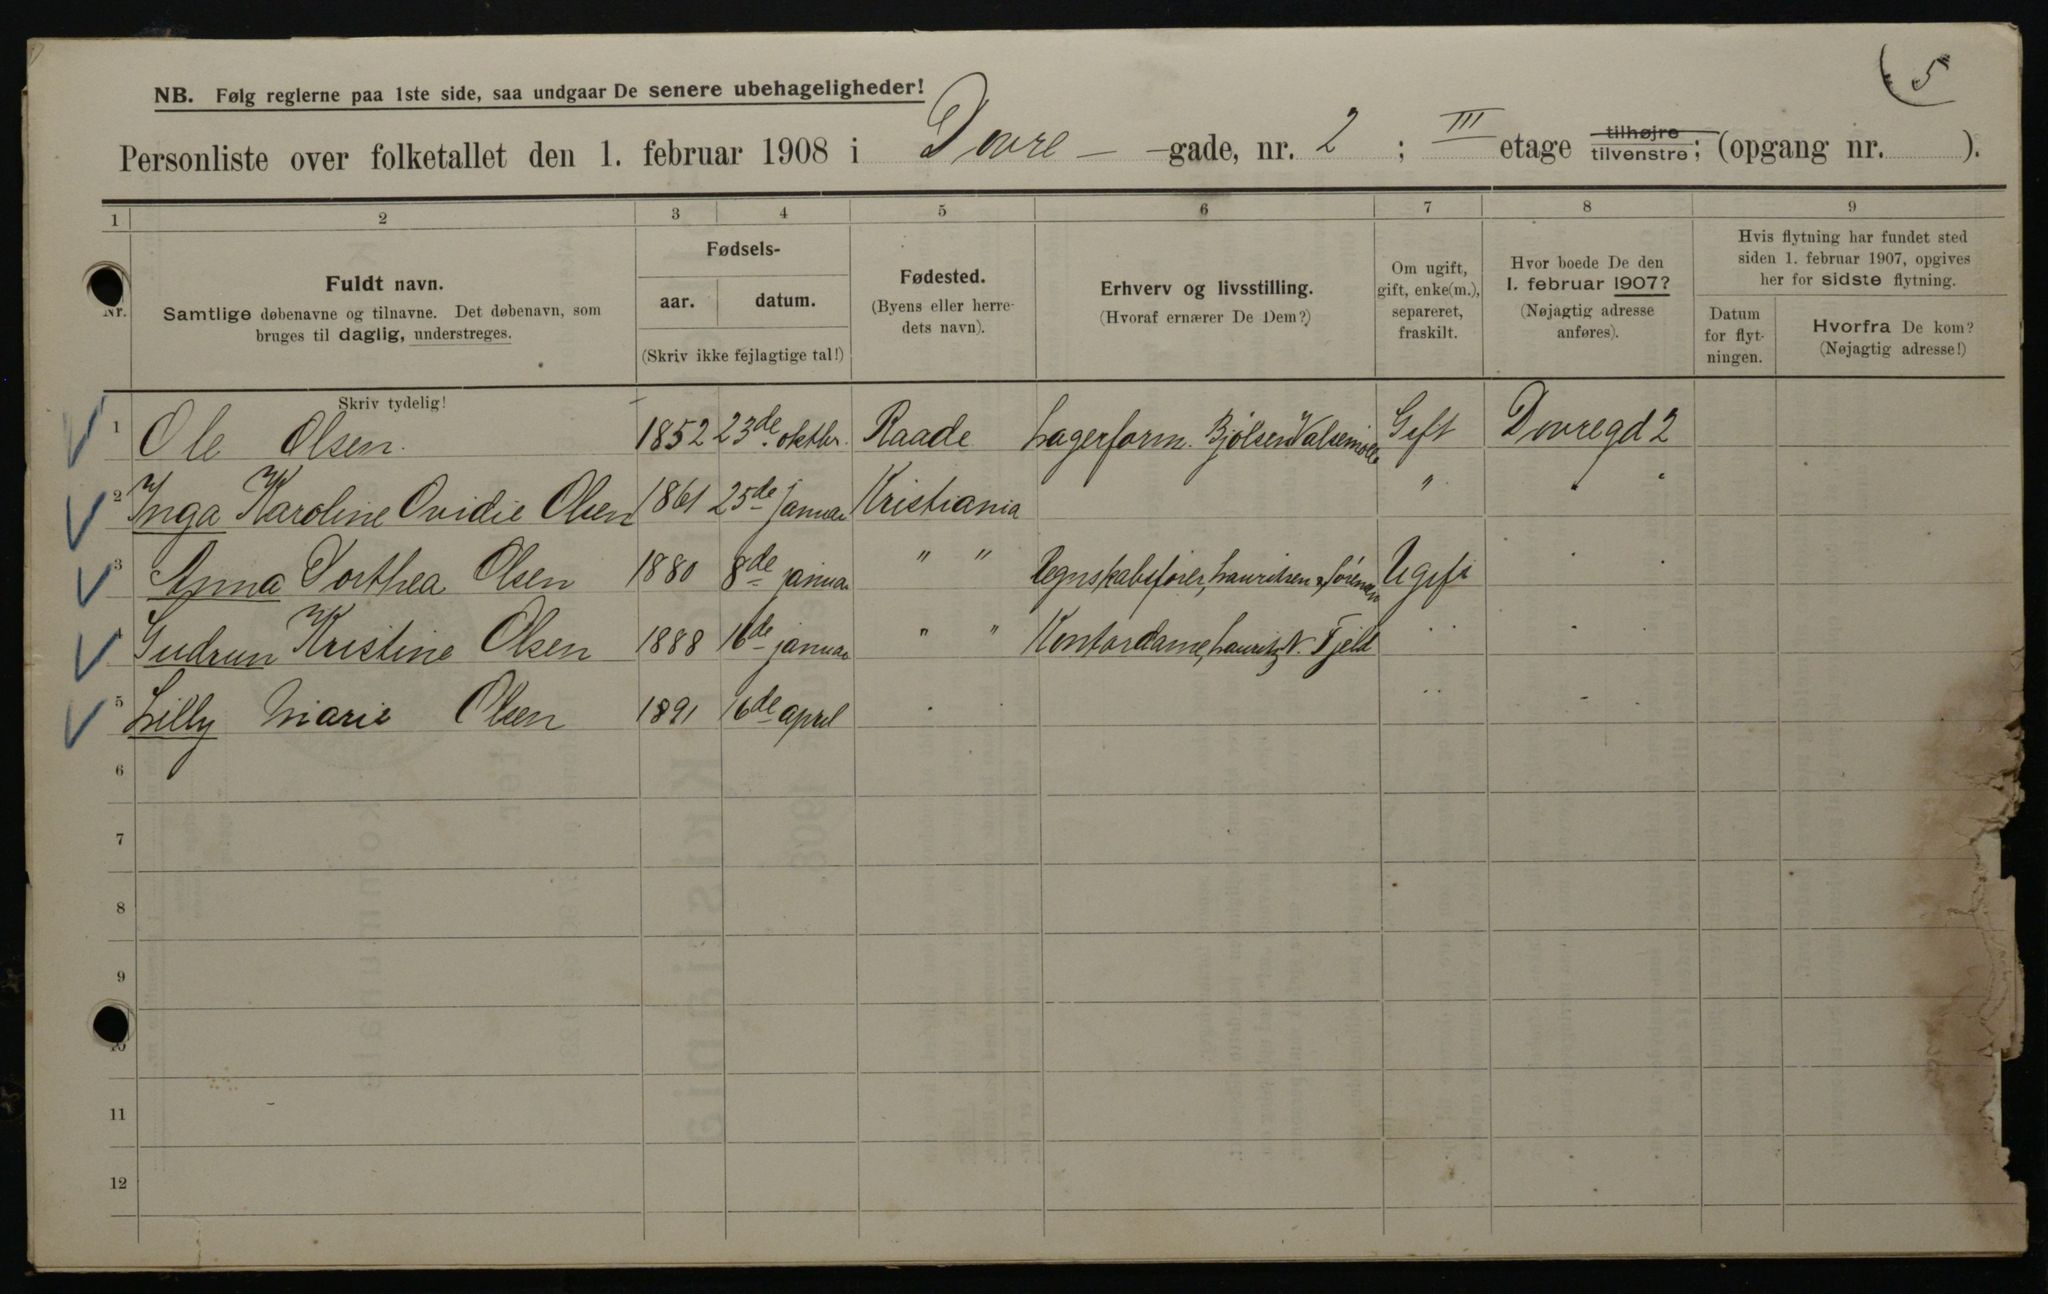 5
NB. Følg reglerne paa 1ste side, saa undgaar De senere ubehageligheder!
Personliste over folketallet den 1. februar 1908 i Dovre - -gade, nr. 2 ; III etage tilhøjre tilvenstre; (opgang nr. ).
1 2 3 4 5 6 7 8 9
Nr.
Fuldt navn.
Samtlige døbenavne og tilnavne. Det døbenavn, som
bruges til daglig, understreges.
Fødsels-
aar. datum.
(Skriv ikke fejlagtige tal!)
Fødested.
(Byens eller herre-
dets navn).
Erhverv og livsstilling.
(Hvoraf ernærer De Dem?)
Om ugift,
gift, enke(m.),
separeret,
fraskilt.
Hvor boede De den
1. februar 1907?
(Nøjagtig adresse
anføres).
Hvis flytning har fundet sted
siden 1. februar 1907, opgives
her for sidste flytning.
Datum
for flyt-
ningen.
Hvorfra De kom?
(Nøjagtig adresse!)
Skriv tydelig!
1 Ole Olsen. 1852 23de oktbr. Raade Lagerform. Bjølsen Valsemølle Gift Dovregd 2
2 Inga Karoline Ovidie Olsen 1861 25de januar Kristiania " " "
3 Anna Dorthea Olsen 1880 8de januar " " Regnskabsfører, Lauritsen & Ugift " "
4 Gudrun Kristine Olsen 1888 16de januar " " Kontordame, Lauritz N. Fjeld " " "
5 Lilly Marie Olsen 1891 16de april " " " "
6
7
8
9
10
11
12